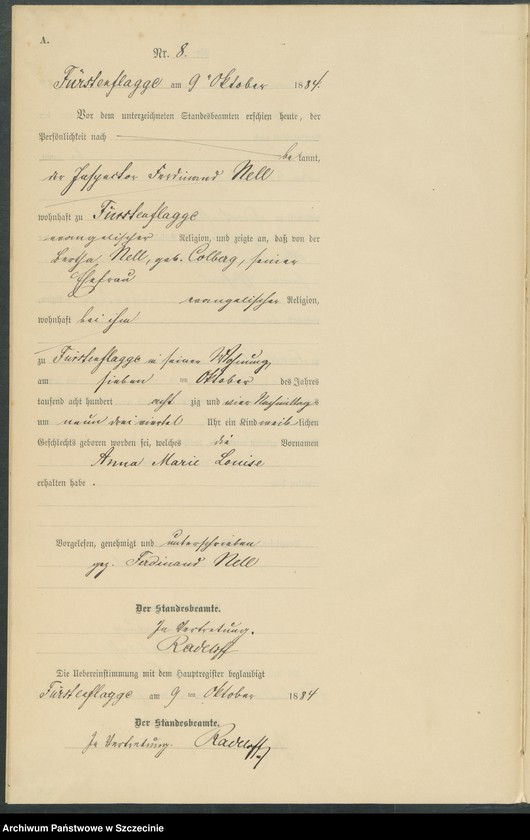 A.
Nr. 8.
Fürstenflagge am 9ten Oktober 1884.
Vor dem unterzeichneten Standesbeamten erschien heute, der
Persönlichkeit nach
bekannt,
der Inspector Ferdinand Nell
wohnhaft zu Fürstenflagge
evangelischer Religion, und zeigte an, daß von der
Bertha Nell, geb. Colbag, seiner
Ehefrau
evangelischer Religion,
wohnhaft bei ihm
zu Fürstenflagge in seiner Wohnung,
am sieben ten Oktober des Jahres
tausend acht hundert acht zig und vier Nachmittags
um neun drei viertel Uhr ein Kind weiblichen
Geschlechts geboren worden sei, welches die Vornamen
Anna Marie Louise
erhalten habe .
Vorgelesen, genehmigt und unterschrieben
gez. Ferdinand Nell
Der Standesbeamte.
In Vertretung.
Radeloff
Die Uebereinstimmung mit dem Hauptregister beglaubigt
Fürstenflagge am 9 ten Oktober 1884
Der Standesbeamte.
In Vertretung. Radeloff
Archiwum Państwowe w Szczecinie